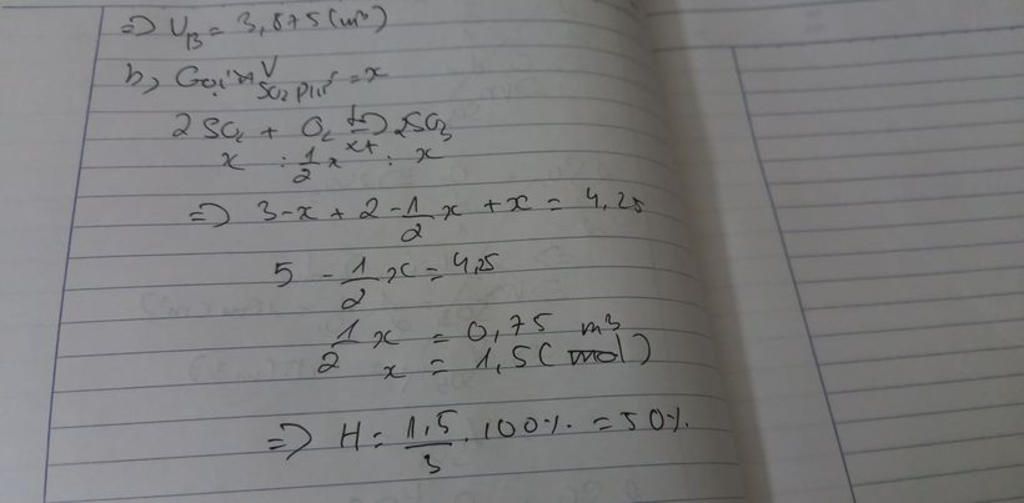 => V_B = 3,875 (m³)
b, Gọi V SO₂ pứ = x
2SO₂ + O₂ ⇌ 2SO₃
x : 1/2 x xt : x
=> 3 - x + 2 - 1/2 x + x = 4,25
5 - 1/2 x = 4,25
1/2 x = 0,75 m³
x = 1,5 (mol)
=> H = 1,5/3 . 100% = 50%.